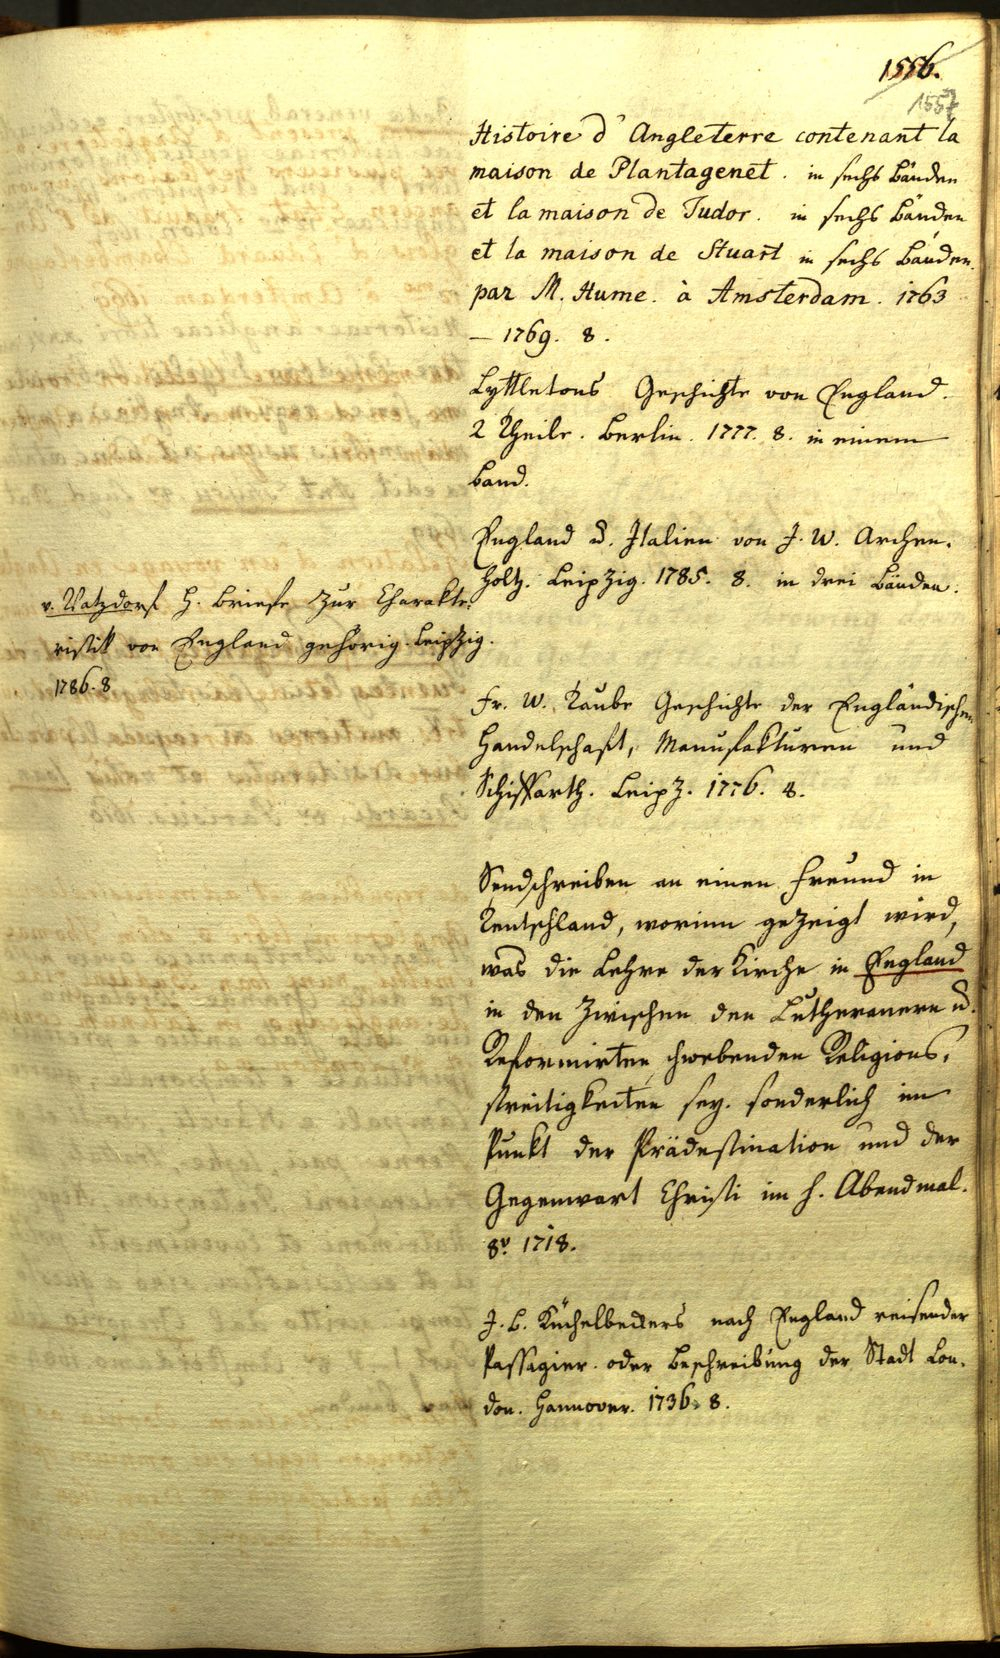 1556.
1557
Histoire d'Angleterre contenant la
maison de Plantagenet. in sechs Bänden
et la maison de Tudor. in sechs Bänden
et la maison de Stuart in sechs Bänden.
par M. Hume. à Amsterdam. 1763
— 1769. 8.
Lyttletons Geschichte von England.
2 Theile. Berlin. 1777. 8. in einem
Band.
England u. Italien von J. W. Archen-
holtz. Leipzig. 1785. 8. in drei Bänden.
v. Watzdorf H. Briefe zur Charakte-
ristik von England gehörig. Leipzig.
1786. 8
Fr. W. Taube Geschichte der Engländischen
Handelschaft, Manufakturen und
Schiffarth. Leipz. 1776. 8.
Sendschreiben an einen Freund in
Teutschland, worinn gezeigt wird,
was die Lehre der Kirche in England
in den zwischen den Lutheranern u.
Reformirten schwebenden Religions-
streitigkeiten sey. sonderlich im
Punkt der Prädestination und der
Gegenwart Christi im h. Abendmal.
8v. 1718.
J. B. Küchelbeckers nach England reisender
Passagier. oder Beschreibung der Stadt Lon-
don. Hannover. 1736. 8.